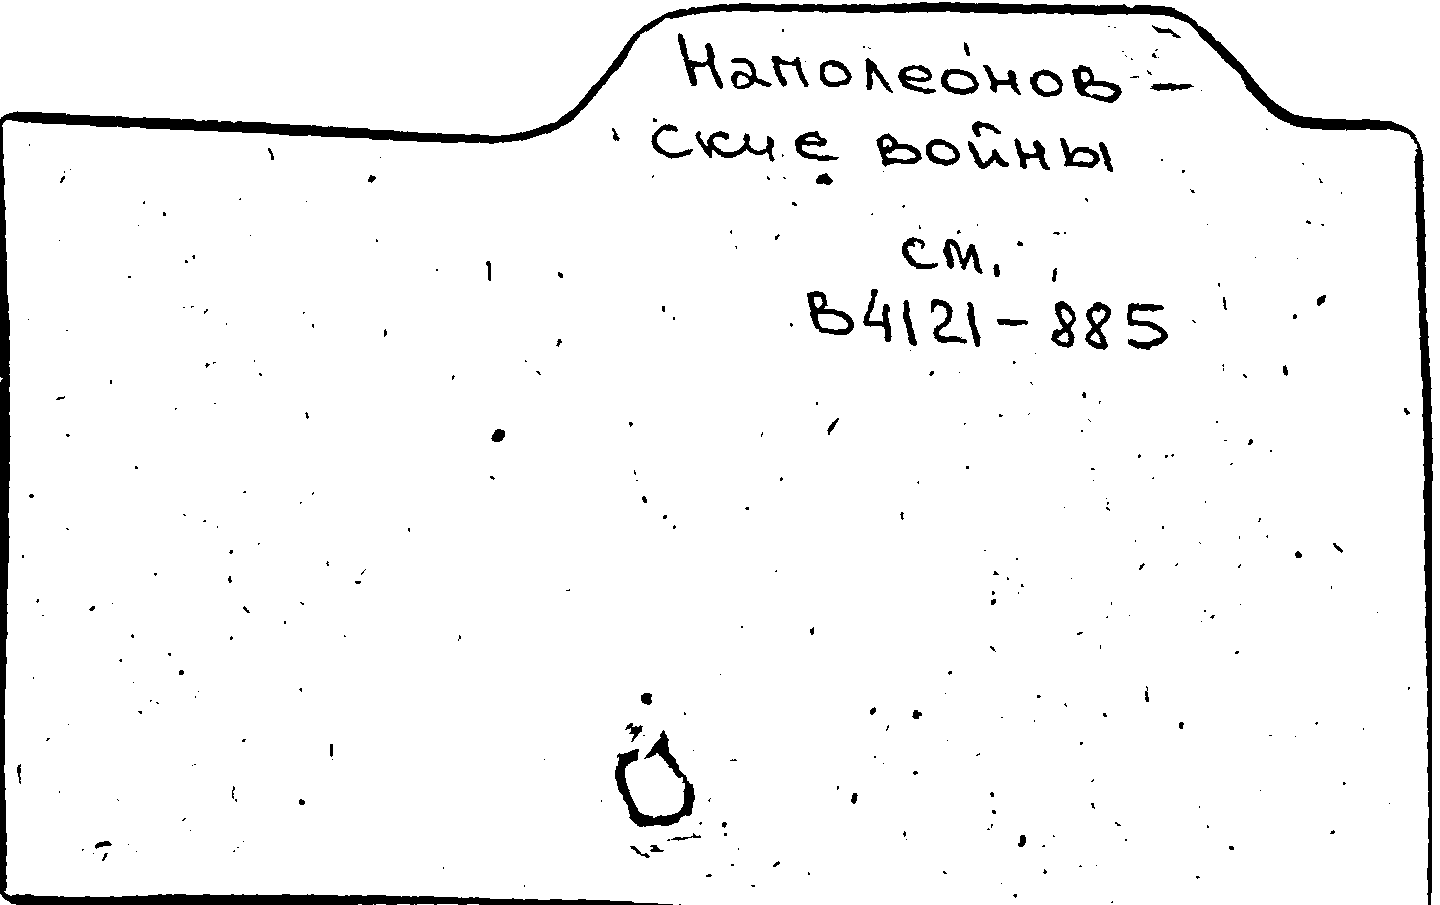 Наполеонов-
ские войны
см.
В4121-885